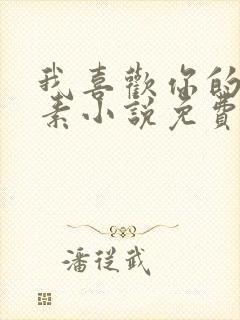 我喜歡你的
素小說免費
潘從武